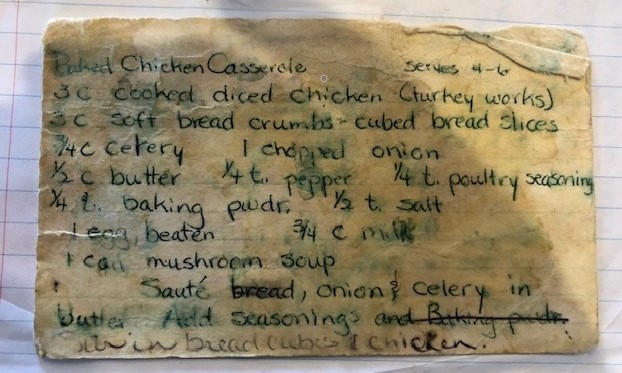 Baked Chicken Casserole serves 4-6
3 c cooked diced chicken (turkey works)
3 c soft bread crumbs - cubed bread slices
3/4 c celery 1 chopped onion
1/2 c butter 1/4 t. pepper 1/4 t. poultry seasoning
1/4 t. baking pwdr. 1/2 t. salt
1 egg, beaten 3/4 c milk
1 can mushroom soup
Sauté bread, onion & celery in
butter Add seasonings and Baking pwdr.
in bread cubes & chicken.